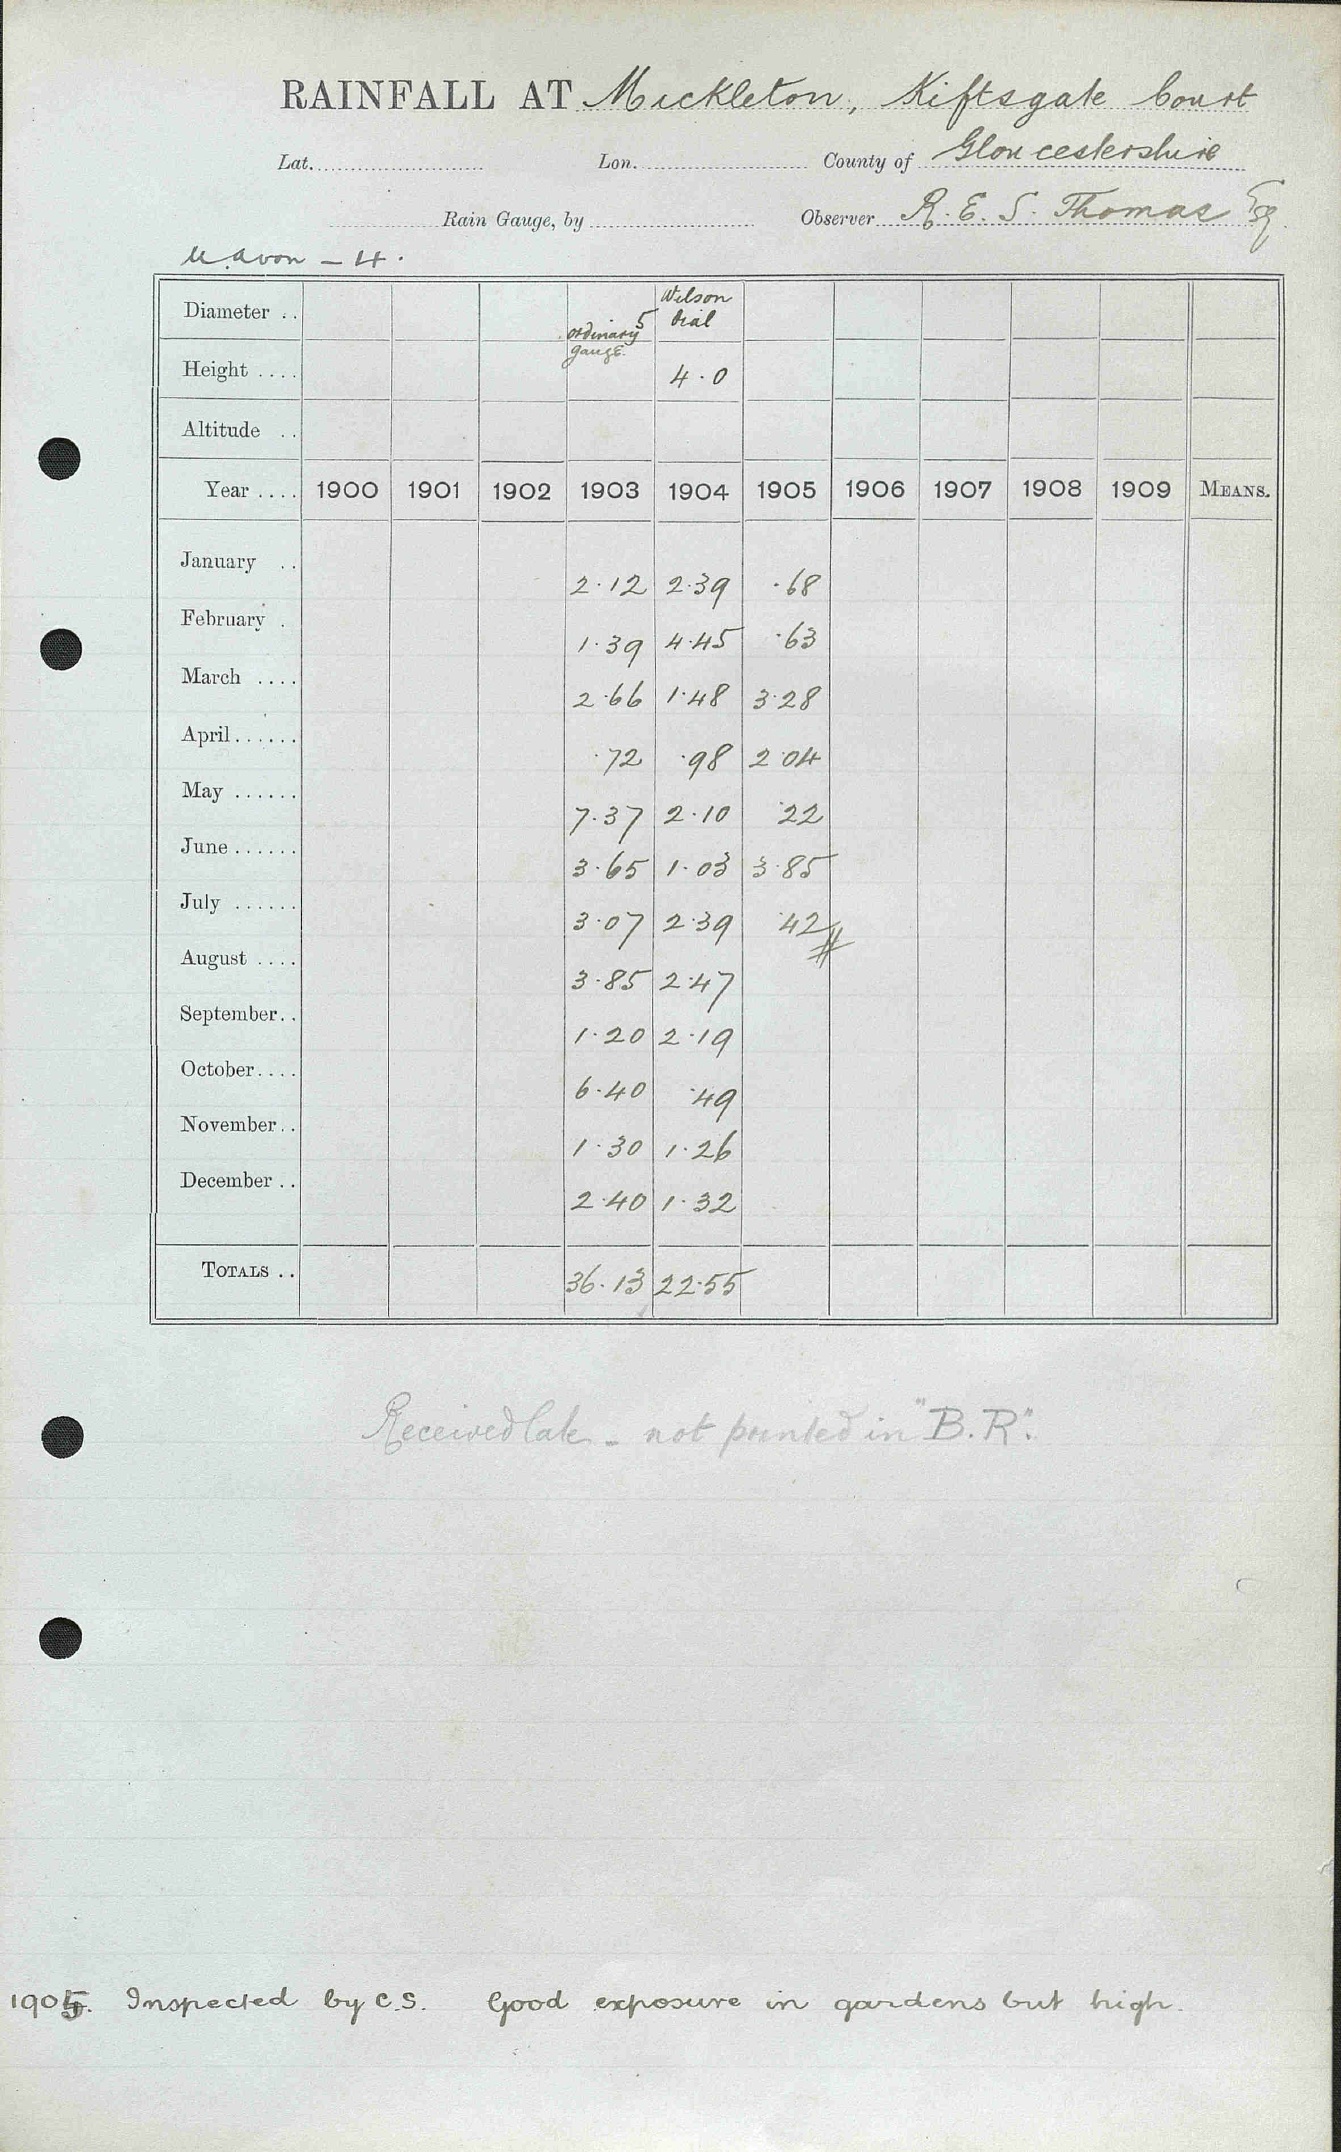 RAINFALL AT Mickleton, Kiftsgate Court
Lat. Lon. County of Gloucestershire
Rain Gauge, by Observer R. E. S. Thomas Esq
U. Avon - 4.
Diameter .. ordinary gauge 5 Wilson dial
Height .... 4.0
Altitude ..
Year .... 1900 1901 1902 1903 1904 1905 1906 1907 1908 1909 MEANS.
January .. 2.12 2.39 .68
February . 1.39 4.45 .63
March .... 2.66 1.48 3.28
April...... .72 .98 2.04
May ...... 7.37 2.10 .22
June...... 3.65 1.03 3.85
July ...... 3.07 2.39 .42
August .... 3.85 2.47
September.. 1.20 2.19
October.... 6.40 .49
November.. 1.30 1.26
December .. 2.40 1.32
TOTALS .. 36.13 22.55
Received late - not printed in "B.R".
1905. Inspected by C.S. Good exposure in gardens but high.